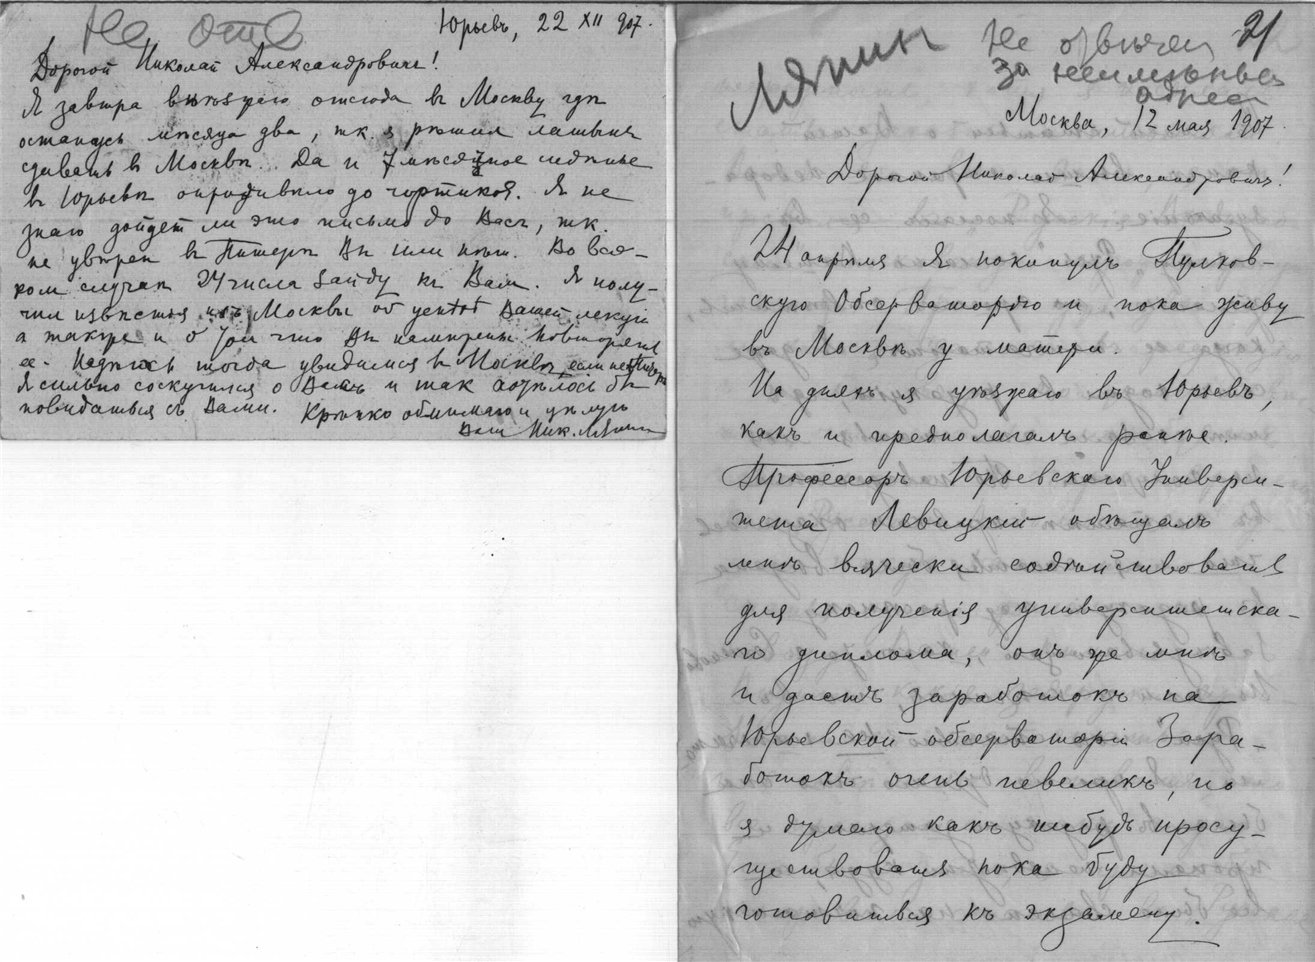 Не отв
Юрьевъ, 22 XII 907.
Дорогой Николай Александровичъ!
Я завтра выѣзжаю отсюда въ Москву гдѣ
останусь мѣсяца два, т.к. я рѣшил латынь
сдавать в Москвѣ. Да и 7 мѣсячное сидѣнье
в Юрьевѣ опротивѣло до чортиков. Я не
знаю дойдет ли это письмо до Вас, т.к.
не увѣрен в Питерѣ Вы или нѣт. Во вся-
ком случаѣ 24 числа зайду к Вам. Я полу-
чил извѣстія изъ Москвы об успѣхѣ Вашей лекціи
а также и о том что Вы намѣрены повторить
ее. Надѣюсь тогда увидимся в Москвѣ, если не в Питерѣ
Я сильно соскучился о Васъ и так хотѣлось бы
повидаться съ Вами. Крѣпко обнимаю и цѣлую
Ваш Ник. Ляпин
Ляпин
Не отвѣчен 21
за неимѣніем
адреса
Москва, 12 мая 1907.
Дорогой Николай Александровичъ!
24 апрѣля я покинулъ Пулков-
скую Обсерваторію и пока живу
въ Москвѣ у матери.
На дняхъ я уѣзжаю въ Юрьевъ,
какъ и предполагалъ ранѣе.
Профессоръ Юрьевскаго Универси-
тета Левицкій обѣщалъ
мнѣ всячески содѣйствовать
для полученія университетска-
го диплома, онъ же мнѣ
и дастъ заработокъ на
Юрьевской обсерваторіи. Зара-
ботокъ очень невеликъ, но
я думаю какъ нибудь просу-
ществовать пока буду
готовиться къ экзамену.